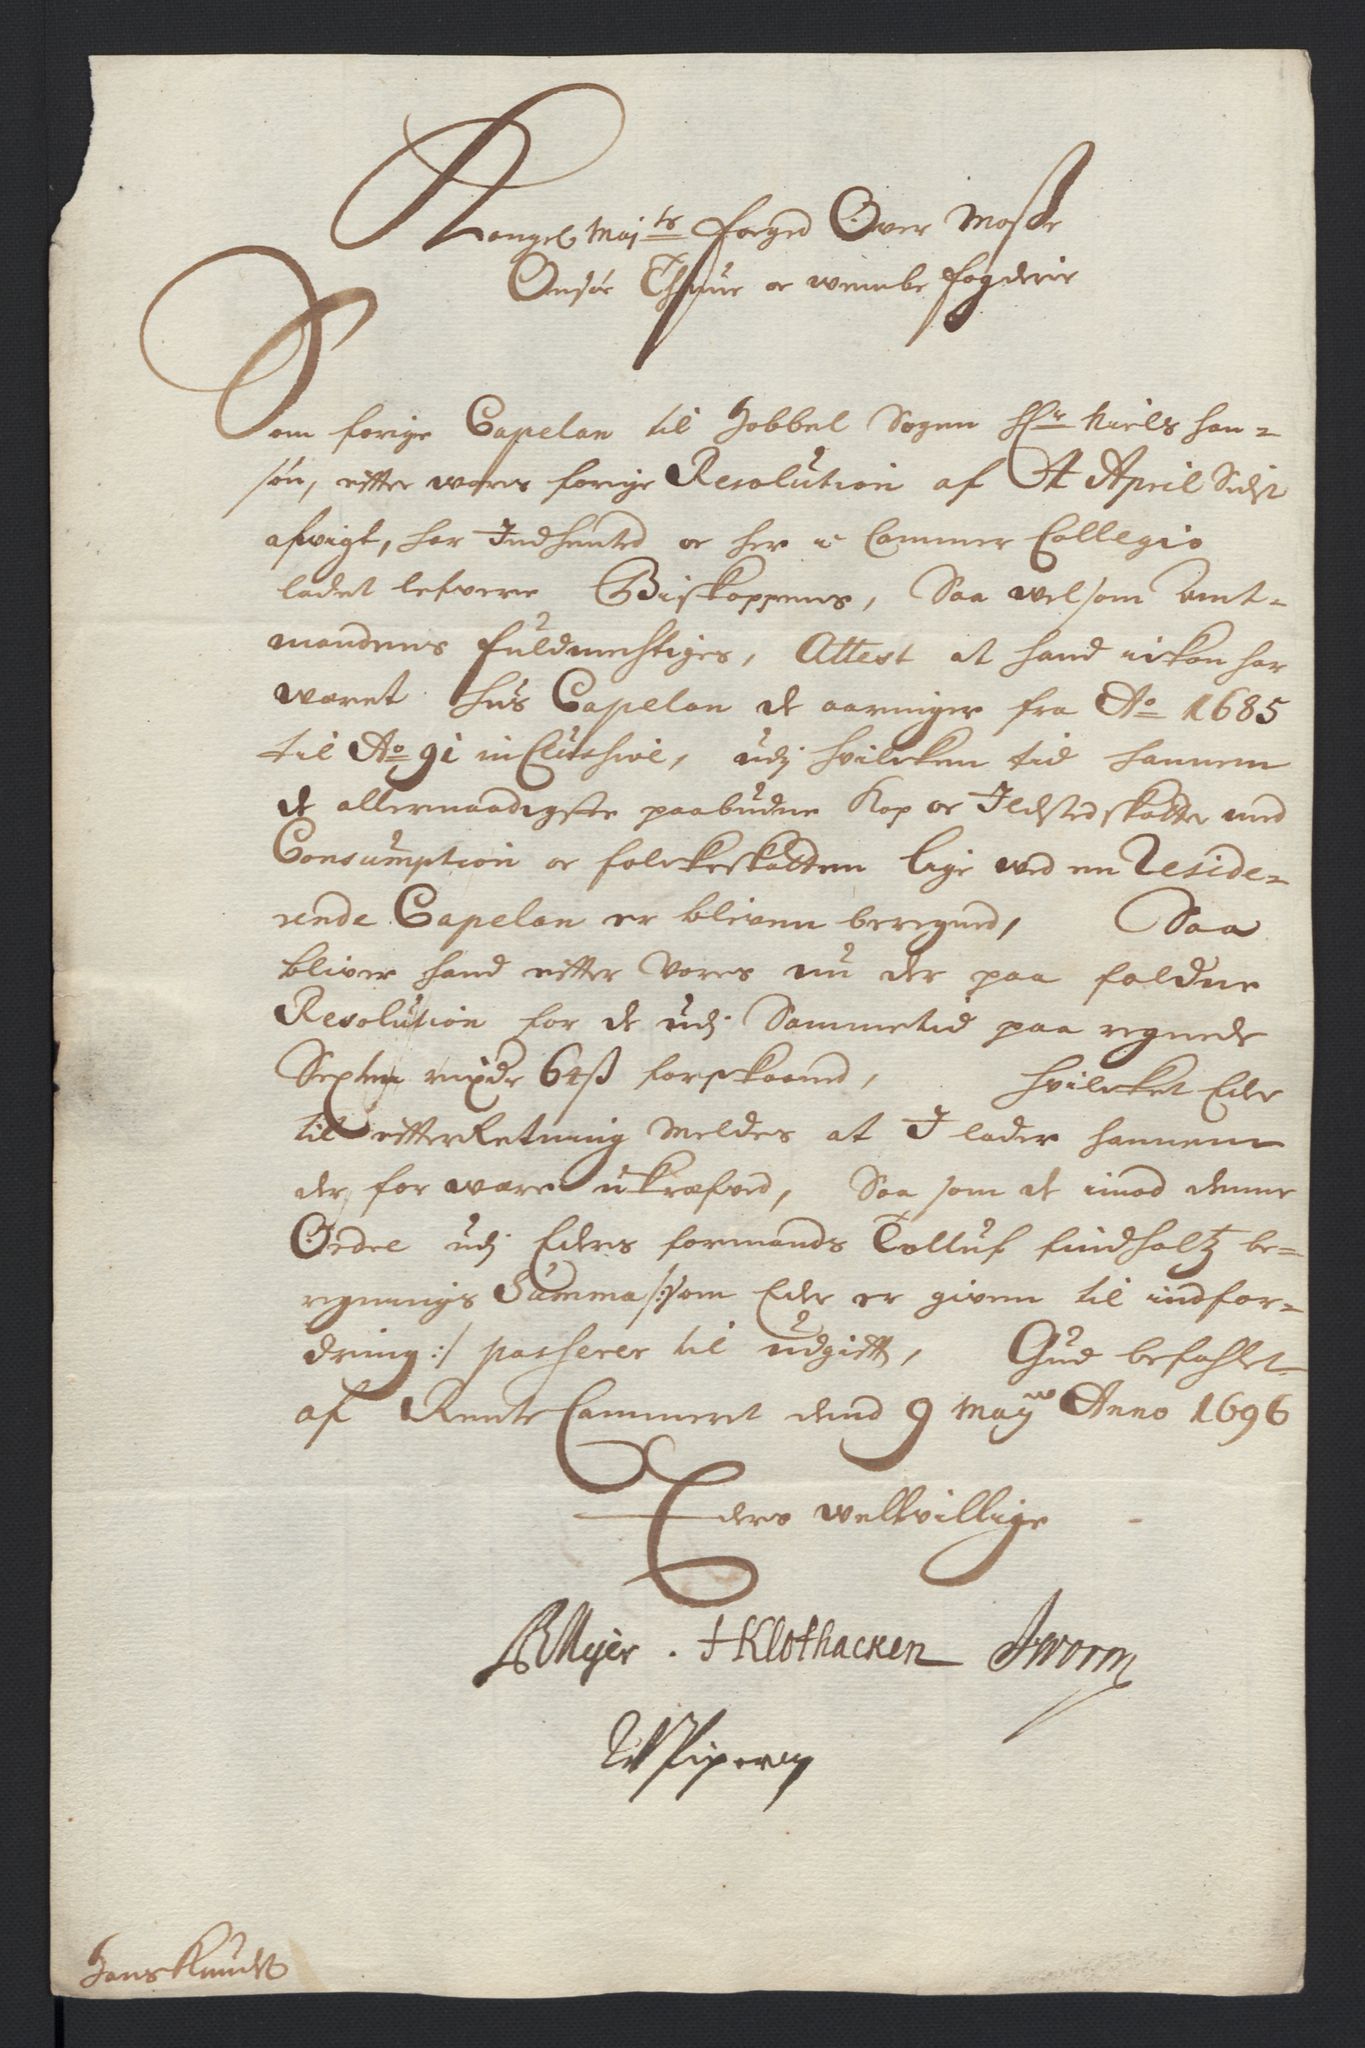 Kongel Maj:ts foged Over Mosse
Onsøe Thune oc weembe fogderie
Som forige Capelan til Hobbel Sogen Hr Niels Han=
søn, effter wores forige Resolution af April Sidst
afvigt, har Indhented oc her i Cammer Collegio
ladet lefvere Biskoppens, Saa velsom Amt=
mandens fuldmechtiges, Attest at hand icken har
wæret Huus Capelan de aaringer fra Ao 1685
til Ao 91 inclusive, udj hvilcken tid hannem
de allernaadigste paabudne Kop oc Ildstedskatter med
Consumption oc folckeskatten lige wed en Reside=
rende Capelan er bleven beregned, Saa
bliver hand effter Vores nu der paa faldne
Resolution for de udj Sammetid paa regnede
Septen rixdr 64 ß forskaaned, hvilcket Eder
til effterRetning meldes at I lader hannem
der for være ukræfved, Saa som de imod denne
Ordre udj Eders formands Tolluf findholtz be=
regnings Summa /: som Eder er given til indfor=
dring :/ passerer til udgifft, Gud befahlet
af RenteCammeret dend 9 Maij Anno 1696
Eders velvillige
BMejer . HKlothacken JWorm
Hans Knudss